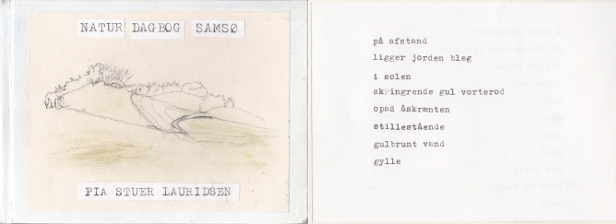 NATUR DAGBOG SAMSØ
PIA STUER LAURIDSEN
på afstand
ligger jorden bleg
i solen
skingrende gul vorterod
opad åskrænten
stillestående
gulbrunt vand
gylle